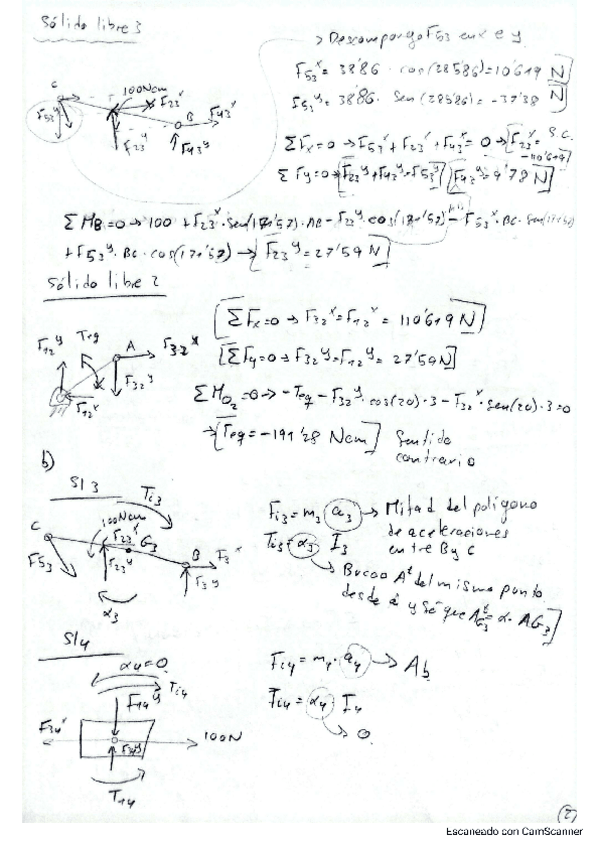 Sólido libre 3
→ Descompongo F53 en x e y
F53ˣ = 38'86 · cos(285'86) = 10'619 N
F53ʸ = 38'86 · Sen(285'86) = -37'38 N
C 100Ncm F23ˣ B F43ˣ
F53 F23ʸ F43ʸ
ΣFx=0 → F53ˣ + F23ˣ + F43ˣ = 0 → F23ˣ = -110'619 S.C.
ΣFy=0 → F23ʸ + F43ʸ = F53ʸ F43ʸ = 9'78 N
ΣMB=0 → 100 + F23ˣ · Sen(171'57) · AB - F23ʸ cos(171'57) - F53ˣ · BC · Sen(171'57)
+ F53ʸ · BC · cos(171'57) → F23ʸ = 27'59 N
Sólido libre 2
ΣFx=0 → F32ˣ = F12ˣ = 110'619 N
ΣFy=0 → F32ʸ = F12ʸ = 27'59 N
F12ʸ Teq A F32ˣ
F32ʸ
F12ˣ
ΣM O2 = 0 → -Teq - F32ʸ · cos(20) · 3 - F32ˣ · sen(20) · 3 = 0
→ Teq = -191'28 Ncm Sentido
contrario
b)
Sl 3
Ti3
C 100Ncm F23ˣ G3 B
F53 F23ʸ
α3
Fi3 = m3 · a3 → Mitad del polígono
de aceleraciones
entre B y C
Ti3 = α3 I3
→ Busco Aᵗ del mismo punto
desde a y sé que Aᵗ G3 = α · AG3
Sl 4
α4=0
Ti4
F14ʸ
F34ˣ 100N
F34ʸ
T14
Fi4 = m4 · a4 → Ab
Ti4 = α4 I4
→ 0
(2)
Escaneado con CamScanner